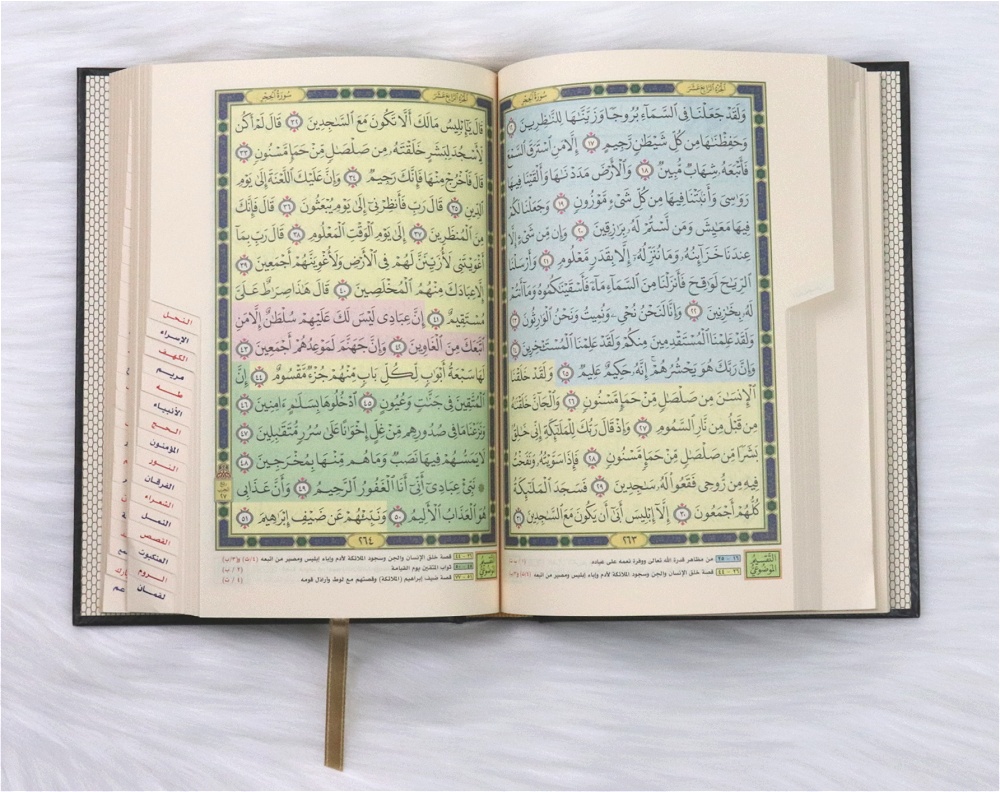 الجزء الرابع عشر
سورة الحجر
وَلَقَدْ جَعَلْنَا فِى ٱلسَّمَآءِ بُرُوجًا وَزَيَّنَّٰهَا لِلنَّٰظِرِينَ ١٦
وَحَفِظْنَٰهَا مِن كُلِّ شَيْطَٰنٍ رَّجِيمٍ ١٧ إِلَّا مَنِ ٱسْتَرَقَ ٱلسَّمْعَ
فَأَتْبَعَهُۥ شِهَابٌ مُّبِينٌ ١٨ وَٱلْأَرْضَ مَدَدْنَٰهَا وَأَلْقَيْنَا فِيهَا
رَوَٰسِىَ وَأَنۢبَتْنَا فِيهَا مِن كُلِّ شَىْءٍ مَّوْزُونٍ ١٩ وَجَعَلْنَا لَكُمْ
فِيهَا مَعَٰيِشَ وَمَن لَّسْتُمْ لَهُۥ بِرَٰزِقِينَ ٢٠ وَإِن مِّن شَىْءٍ إِلَّا
عِندَنَا خَزَآئِنُهُۥ وَمَا نُنَزِّلُهُۥٓ إِلَّا بِقَدَرٍ مَّعْلُومٍ ٢١ وَأَرْسَلْنَا
ٱلرِّيَٰحَ لَوَٰقِحَ فَأَنزَلْنَا مِنَ ٱلسَّمَآءِ مَآءً فَأَسْقَيْنَٰكُمُوهُ وَمَآ أَنتُمْ
لَهُۥ بِخَٰزِنِينَ ٢٢ وَإِنَّا لَنَحْنُ نُحْىِۦ وَنُمِيتُ وَنَحْنُ ٱلْوَٰرِثُونَ ٢٣
وَلَقَدْ عَلِمْنَا ٱلْمُسْتَقْدِمِينَ مِنكُمْ وَلَقَدْ عَلِمْنَا ٱلْمُسْتَـْٔخِرِينَ ٢٤
وَإِنَّ رَبَّكَ هُوَ يَحْشُرُهُمْ إِنَّهُۥ حَكِيمٌ عَلِيمٌ ٢٥ وَلَقَدْ خَلَقْنَا
ٱلْإِنسَٰنَ مِن صَلْصَٰلٍ مِّنْ حَمَإٍ مَّسْنُونٍ ٢٦ وَٱلْجَآنَّ خَلَقْنَٰهُ
مِن قَبْلُ مِن نَّارِ ٱلسَّمُومِ ٢٧ وَإِذْ قَالَ رَبُّكَ لِلْمَلَٰٓئِكَةِ إِنِّى خَٰلِقٌۢ
بَشَرًا مِّن صَلْصَٰلٍ مِّنْ حَمَإٍ مَّسْنُونٍ ٢٨ فَإِذَا سَوَّيْتُهُۥ وَنَفَخْتُ
فِيهِ مِن رُّوحِى فَقَعُوا۟ لَهُۥ سَٰجِدِينَ ٢٩ فَسَجَدَ ٱلْمَلَٰٓئِكَةُ
كُلُّهُمْ أَجْمَعُونَ ٣٠ إِلَّآ إِبْلِيسَ أَبَىٰٓ أَن يَكُونَ مَعَ ٱلسَّٰجِدِينَ ٣١
٢٦٣
التقسيم الموضوعي
١٦ - ٢٥ من مظاهر قدرة الله تعالى ووفرة نعمه على عباده
٢٦ - ٤٤ قصة خلق الإنسان والجن وسجود الملائكة لآدم وإباء إبليس ومصير من اتبعه
الجزء الرابع عشر
سورة الحجر
قَالَ يَٰٓإِبْلِيسُ مَا لَكَ أَلَّا تَكُونَ مَعَ ٱلسَّٰجِدِينَ ٣٢ قَالَ لَمْ أَكُن
لِّأَسْجُدَ لِبَشَرٍ خَلَقْتَهُۥ مِن صَلْصَٰلٍ مِّنْ حَمَإٍ مَّسْنُونٍ ٣٣
قَالَ فَٱخْرُجْ مِنْهَا فَإِنَّكَ رَجِيمٌ ٣٤ وَإِنَّ عَلَيْكَ ٱللَّعْنَةَ إِلَىٰ يَوْمِ
ٱلدِّينِ ٣٥ قَالَ رَبِّ فَأَنظِرْنِىٓ إِلَىٰ يَوْمِ يُبْعَثُونَ ٣٦ قَالَ فَإِنَّكَ
مِنَ ٱلْمُنظَرِينَ ٣٧ إِلَىٰ يَوْمِ ٱلْوَقْتِ ٱلْمَعْلُومِ ٣٨ قَالَ رَبِّ بِمَآ
أَغْوَيْتَنِى لَأُزَيِّنَنَّ لَهُمْ فِى ٱلْأَرْضِ وَلَأُغْوِيَنَّهُمْ أَجْمَعِينَ ٣٩
إِلَّا عِبَادَكَ مِنْهُمُ ٱلْمُخْلَصِينَ ٤٠ قَالَ هَٰذَا صِرَٰطٌ عَلَىَّ
مُسْتَقِيمٌ ٤١ إِنَّ عِبَادِى لَيْسَ لَكَ عَلَيْهِمْ سُلْطَٰنٌ إِلَّا مَنِ
ٱتَّبَعَكَ مِنَ ٱلْغَاوِينَ ٤٢ وَإِنَّ جَهَنَّمَ لَمَوْعِدُهُمْ أَجْمَعِينَ ٤٣
لَهَا سَبْعَةُ أَبْوَٰبٍ لِّكُلِّ بَابٍ مِّنْهُمْ جُزْءٌ مَّقْسُومٌ ٤٤ إِنَّ
ٱلْمُتَّقِينَ فِى جَنَّٰتٍ وَعُيُونٍ ٤٥ ٱدْخُلُوهَا بِسَلَٰمٍ ءَامِنِينَ ٤٦
وَنَزَعْنَا مَا فِى صُدُورِهِم مِّنْ غِلٍّ إِخْوَٰنًا عَلَىٰ سُرُرٍ مُّتَقَٰبِلِينَ ٤٧
لَا يَمَسُّهُمْ فِيهَا نَصَبٌ وَمَا هُم مِّنْهَا بِمُخْرَجِينَ ٤٨
۞ نَبِّئْ عِبَادِىٓ أَنِّىٓ أَنَا ٱلْغَفُورُ ٱلرَّحِيمُ ٤٩ وَأَنَّ عَذَابِى
هُوَ ٱلْعَذَابُ ٱلْأَلِيمُ ٥٠ وَنَبِّئْهُمْ عَن ضَيْفِ إِبْرَٰهِيمَ ٥١
٢٦٤
التقسيم الموضوعي
٢٦ - ٤٤ قصة خلق الإنسان والجن وسجود الملائكة لآدم وإباء إبليس ومصير من اتبعه
ثواب المتقين يوم القيامة
قصة ضيف إبراهيم (الملائكة) وقصتهم مع لوط وأراذل قومه
النحل
الإسراء
الكهف
مريم
طه
الأنبياء
الحج
المؤمنون
النور
الفرقان
الشعراء
النمل
القصص
العنكبوت
الروم
لقمان